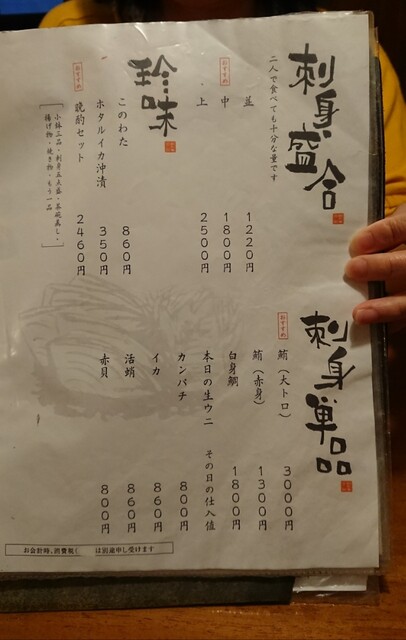 刺身盛合
二人で食べても十分な量です
並 1220円
おすすめ
中 1800円
上 2500円
珍味
このわた 860円
ホタルイカ沖漬 350円
おすすめ
晩酌セット 2460円
小鉢三品・刺身五点盛・茶碗蒸し・
揚げ物・焼き物・もう一品
刺身単品
おすすめ
鮪(大トロ) 3000円
鮪(赤身) 1300円
白身鯛 1800円
本日の生ウニ その日の仕入値
カンパチ 800円
イカ 860円
活蛸 860円
赤貝 800円
お会計時、消費税 は別途申し受けます